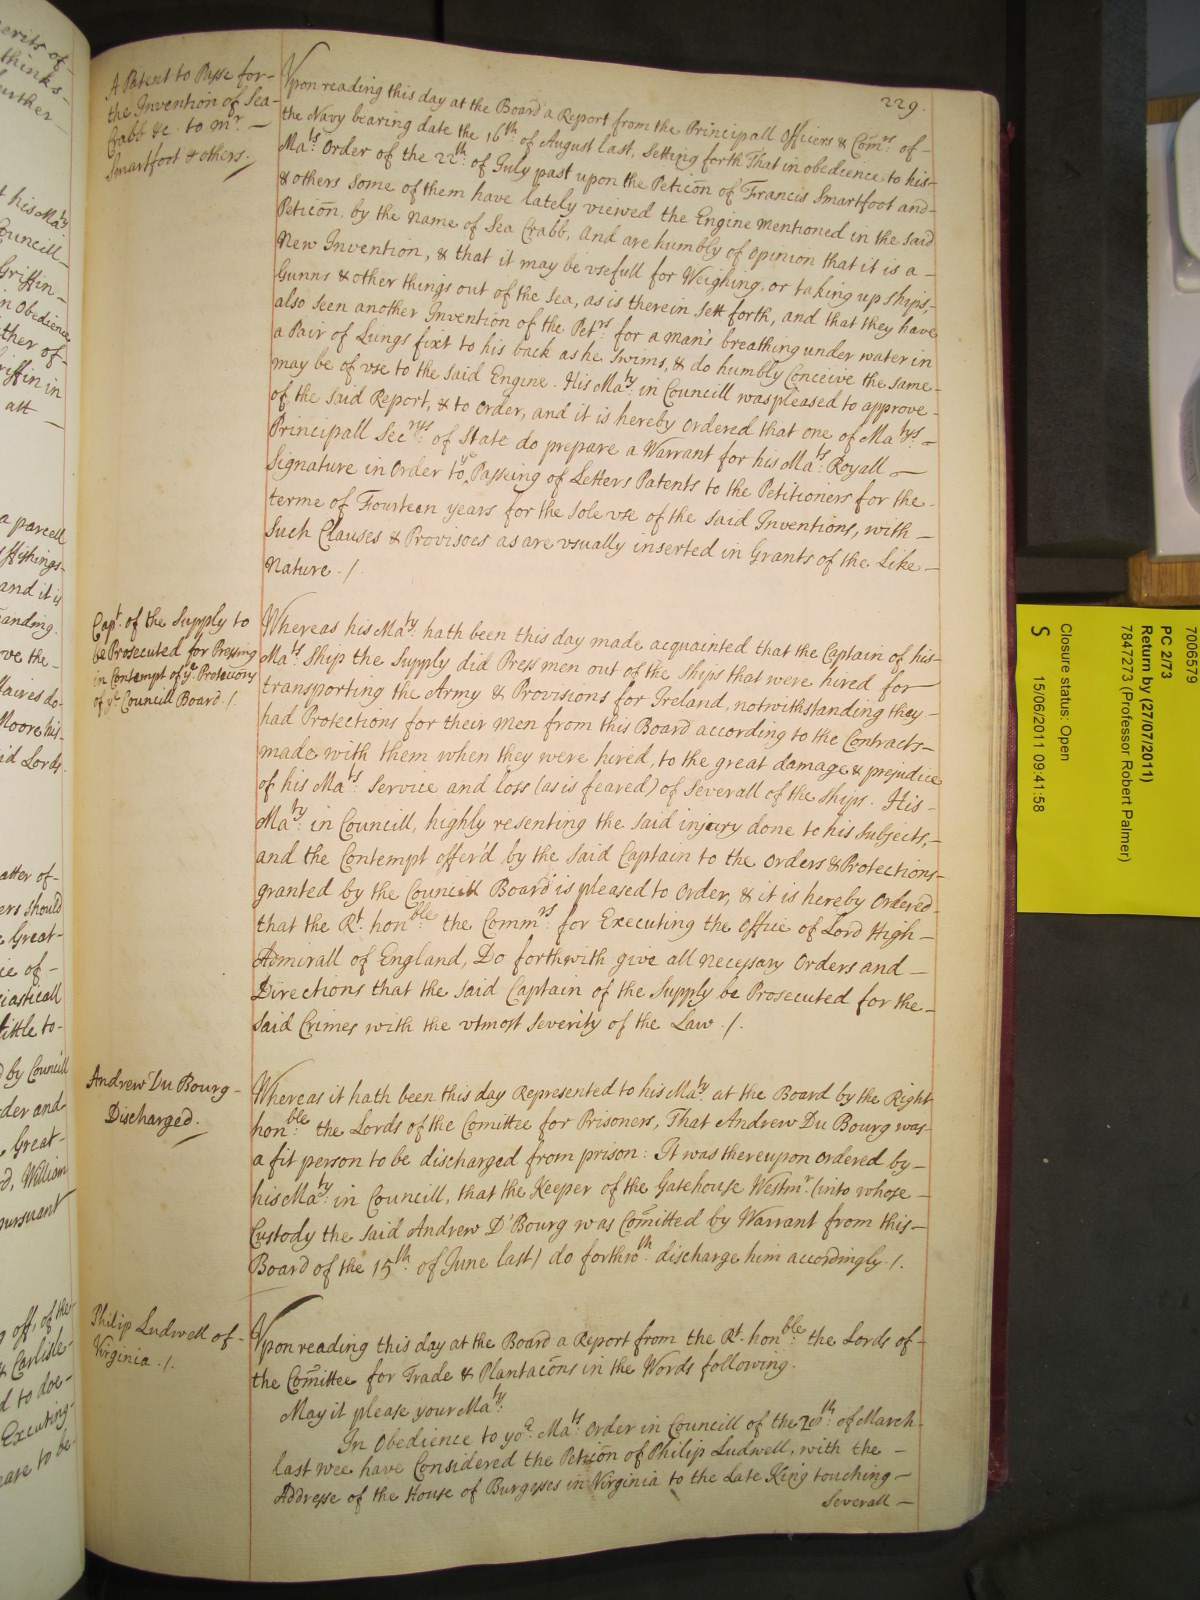 229.
A Patent to Passe for
the Invention of Sea
Crabb &c. to Mr.
Smartfoot & others./
Vpon reading this day at the Board a Report from the Principall Officers & Com̄rs of
the Navy bearing date the 16th of August last, Setting forth That in obedience to his
Mats. Order of the 22th of July past upon the Peticōn of Francis Smartfoot and
& others some of them have lately viewed the Engine mentioned in the said
Peticōn, by the name of Sea Crabb, And are humbly of opinion that it is a
New Invention, & that it may be vsefull for Weighing, or taking up Ships,
Gunns & other things out of the Sea, as is therein Sett forth, and that they have
also seen another Invention of the Petrs. for a man's breathing under water in
a Pair of Lungs fixt to his back as he Swims, & do humbly Conceive the same
may be of vse to the said Engine. His Maty. in Councill was pleased to approve
of the said Report, & to Order, and it is hereby ordered that one of Matys.
Principall Secrys. of State do prepare a Warrant for his Mats. Royall
Signature in Order to ye Passing of Letters Patents to the Petitioners for the
terme of Fourteen years for the sole vse of the said Inventions, with
Such Clauses & Provisoes as are vsually inserted in Grants of the Like
Nature ./
Capt. of the Supply to
be Prosecuted for Pressing
in Contempt of ye Protecions
of ye Councill Board ./
Whereas his Maty. hath been this day made acquainted that the Captain of his
Mats. Ship the Supply did Press men out of the Ships that were hired for
transporting the Army & Provisions for Ireland, notwithstanding they
had Protections for their men from this Board according to the Contracts
made with them when they were hired, to the great damage & prejudice
of his Mats. Service and loss (as is feared) of Severall of the Ships. His
Maty. in Councill, highly resenting the said injury done to his Subjects,
and the Contempt offer'd by the said Captain to the Orders & Protections
granted by the Councill Board is pleased to Order, & it is hereby Ordered
that the Rt. honble. the Commrs. for Executing the Office of Lord High
Admirall of England, Do forthwith give all necessary Orders and
Directions that the said Captain of the Supply be Prosecuted for the
said Crimes with the vtmost Severity of the Law ./.
Andrew Du Bourg
Discharged./
Whereas it hath been this day Represented to his Maty. at the Board by the Right
honble. the Lords of the Com̄ittee for Prisoners, That Andrew Du Bourg was
a fit person to be discharged from prison: It was thereupon ordered by
his Maty. in Councill, that the Keeper of the Gatehouse Westmr. (into whose
Custody the said Andrew D'Bourg was Com̄itted by Warrant from this
Board of the 15th. of June last) do forthwth. discharge him accordingly ./.
Philip Ludwell of
Virginia ./.
Vpon reading this day at the Board a Report from the Rt. honble. the Lords of
the Com̄ittee for Trade & Plantacōns in the Words following.
May it please your Maty.
In Obedience to yor. Mats. Order in Councill of the 20th. of March
last wee have Considered the Peticōn of Philip Ludwell, with the
Addresse of the House of Burgesses in Virginia to the Late King touching
Severall
7006579
PC 2/73
Return by (27/07/2011)
7847273 (Professor Robert Palmer)
Closure status: Open
S 15/06/2011 09:41:58